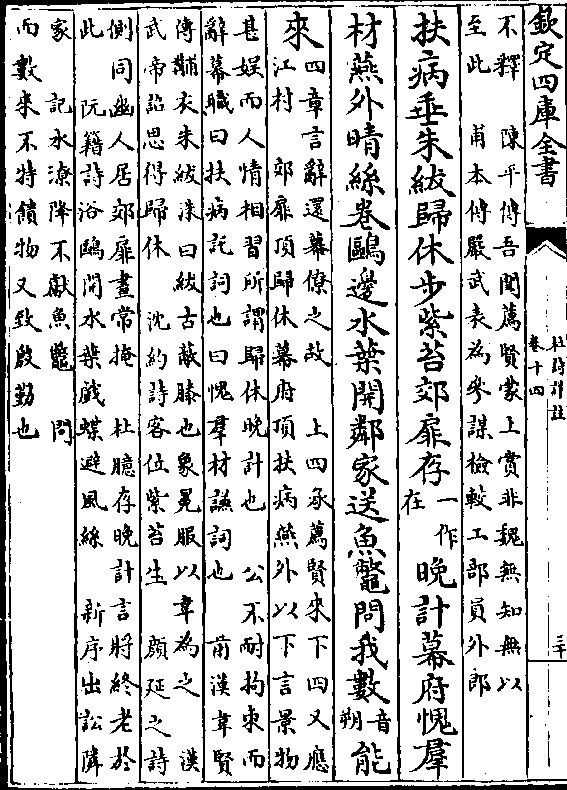 欽定四庫全書
杜詩詳註
卷十四
三十
不釋 陳平傳吾聞薦賢蒙上賞非魏無知無以
至此 甫本傳嚴武表為參謀檢較工部員外郎
扶病垂朱紱歸休步紫苔郊扉存一作在晚計幕府愧羣
材燕外晴絲卷鷗邊水葉開鄰家送魚鼈問我數音朔能
來
四章言辭還幕僚之故 上四承薦賢來下四又應
江村 郊扉頂歸休幕府頂扶病燕外以下言景物
甚娛而人情相習所謂歸休晚計也 公不耐拘束而
辭幕職曰扶病託詞也曰愧羣材謙詞也 前漢韋賢
傳黼衣朱紱洙曰紱古蔽膝也象冕服以韋為之 漢
武帝詔思得歸休 沈約詩客位紫苔生 顔延之詩
側同幽人居郊扉晝常掩 杜臆存晚計言將終老於
此 阮籍詩浴鷗開水葉戲蝶避風絲 新序出訟隣
家 記水潦降不獻魚鼈 問
而數來不特饋物又致殷勤也